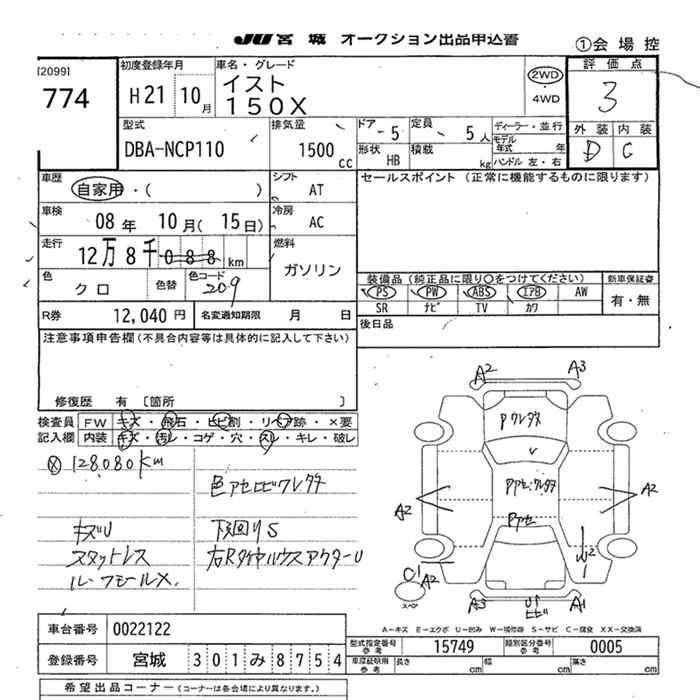 JU 宮城 オークション出品申込書
①会場控
[2099]
774
初度登録年月
H21 10月
車名・グレード
イスト
150X
2WD
4WD
評価点
3
外装 内装
D C
型式
DBA-NCP110
排気量
1500 cc
ドア 5
定員 5人
形状 HB
積載 kg
ディーラー・並行
モデル年式 年
ハンドル 左・右
車歴
自家用・( )
シフト AT
セールスポイント (正常に機能するものに限ります)
車検
08年 10月( 15日)
冷房 AC
走行
12万8千088km
燃料
ガソリン
色
クロ
色替
色コード
209
装備品(純正品に限り○をつけてください)
新車保証書
PS PW ABS エアB AW
SR ナビ TV カワ
有・無
R券 12,040円
名変通知期限 月 日
後日品
注意事項申告欄(不具合内容等は具体的に記入して下さい)
修復歴 有 [箇所 ]
検査員 FW キズ・飛石・ヒビ割・リペア跡・×要
記入欄 内装 キズ・汚レ・コゲ・穴・スレ・キレ・破レ
128080km
色アセヒビワレクテ
キズU
下廻りS
スタットレス
A2 A3
A2 A2
W2
C1 A2
スペア
A3 U1 A1
ヒビ
A-キズ E-エクボ U-凹み W-補修跡 S-サビ C-腐食 XX-交換済
車台番号 0022122
型式指定番号 参考 15749
類別区分番号 参考 0005
登録番号 宮城 301み8754
車庫証明用 参考 長さ cm 幅 cm 高さ cm
希望出品コーナー(コーナーは各会場により異なります。)